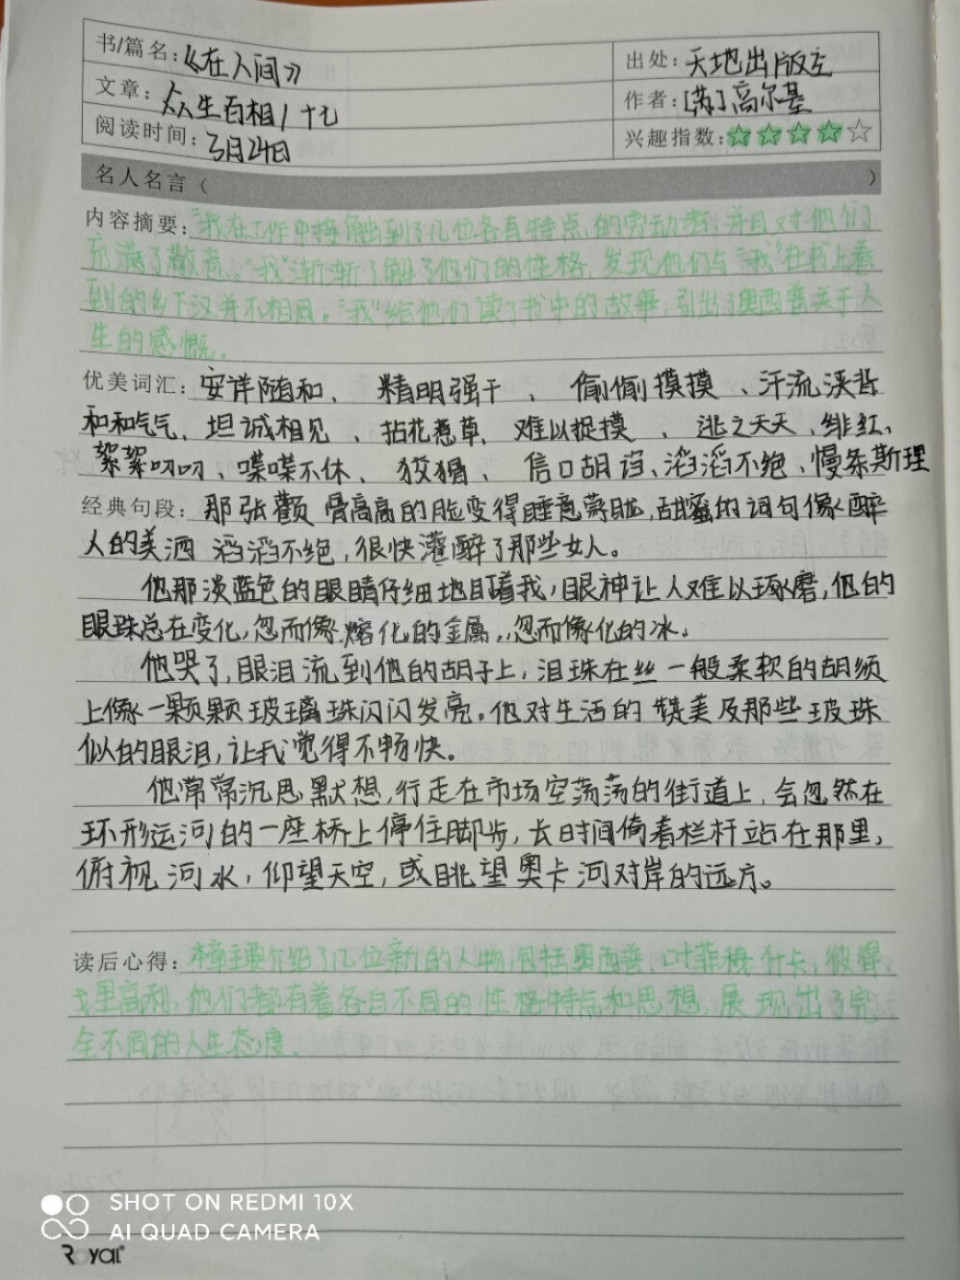 书/篇名：《在人间》 出处：天地出版社
文章：众生百相/十七 作者：[苏]高尔基
阅读时间：3月24日 兴趣指数：☆☆☆☆☆
名人名言（ ）
内容摘要："我在工作中接触到了几位各有特点的劳动者，并且对他们
充满了敵意。"我"渐渐了解了他们的性格，发现他们与"我"在书上看
到的乡下汉并不相同。"我"给他们读了书中的故事，引出了奥西普关于人
生的感慨。
优美词汇：安详随和、 精明强干 、 偷偷摸摸 、汗流浃背
和和气气、坦诚相见 、拈花惹草、难以捉摸 、逃之夭夭、绯红、
絮絮叨叨、喋喋不休、 狡猾、 信口胡诌、滔滔不绝、慢条斯理
经典句段：那张颧骨高高的脸变得睡意蒙眬，甜蜜的词句像醉
人的美酒 滔滔不绝，很快灌醉了那些女人。
他那淡蓝色的眼睛仔细地盯着我，眼神让人难以琢磨，他的
眼珠总在变化，忽而像熔化的金属，忽而像化的冰。
他哭了，眼泪流到他的胡子上，泪珠在丝一般柔软的胡须
上像一颗颗玻璃珠闪闪发亮。他对生活的赞美及那些玻珠
似的眼泪，让我觉得不畅快。
他常常沉思默想，行走在市场空荡荡的街道上，会忽然在
环形运河的一座桥上停住脚步，长时间倚着栏杆站在那里，
俯视河水，仰望天空，或眺望奥卡河对岸的远方。
读后心得：本章主要介绍了几位新的人物，包括奥西普、叶菲穆什卡，彼得、
戈里高利，他们都有着各自不同的性格特点和思想，展现出了完
全不同的人生态度。
SHOT ON REDMI 10X
AI QUAD CAMERA
Royal